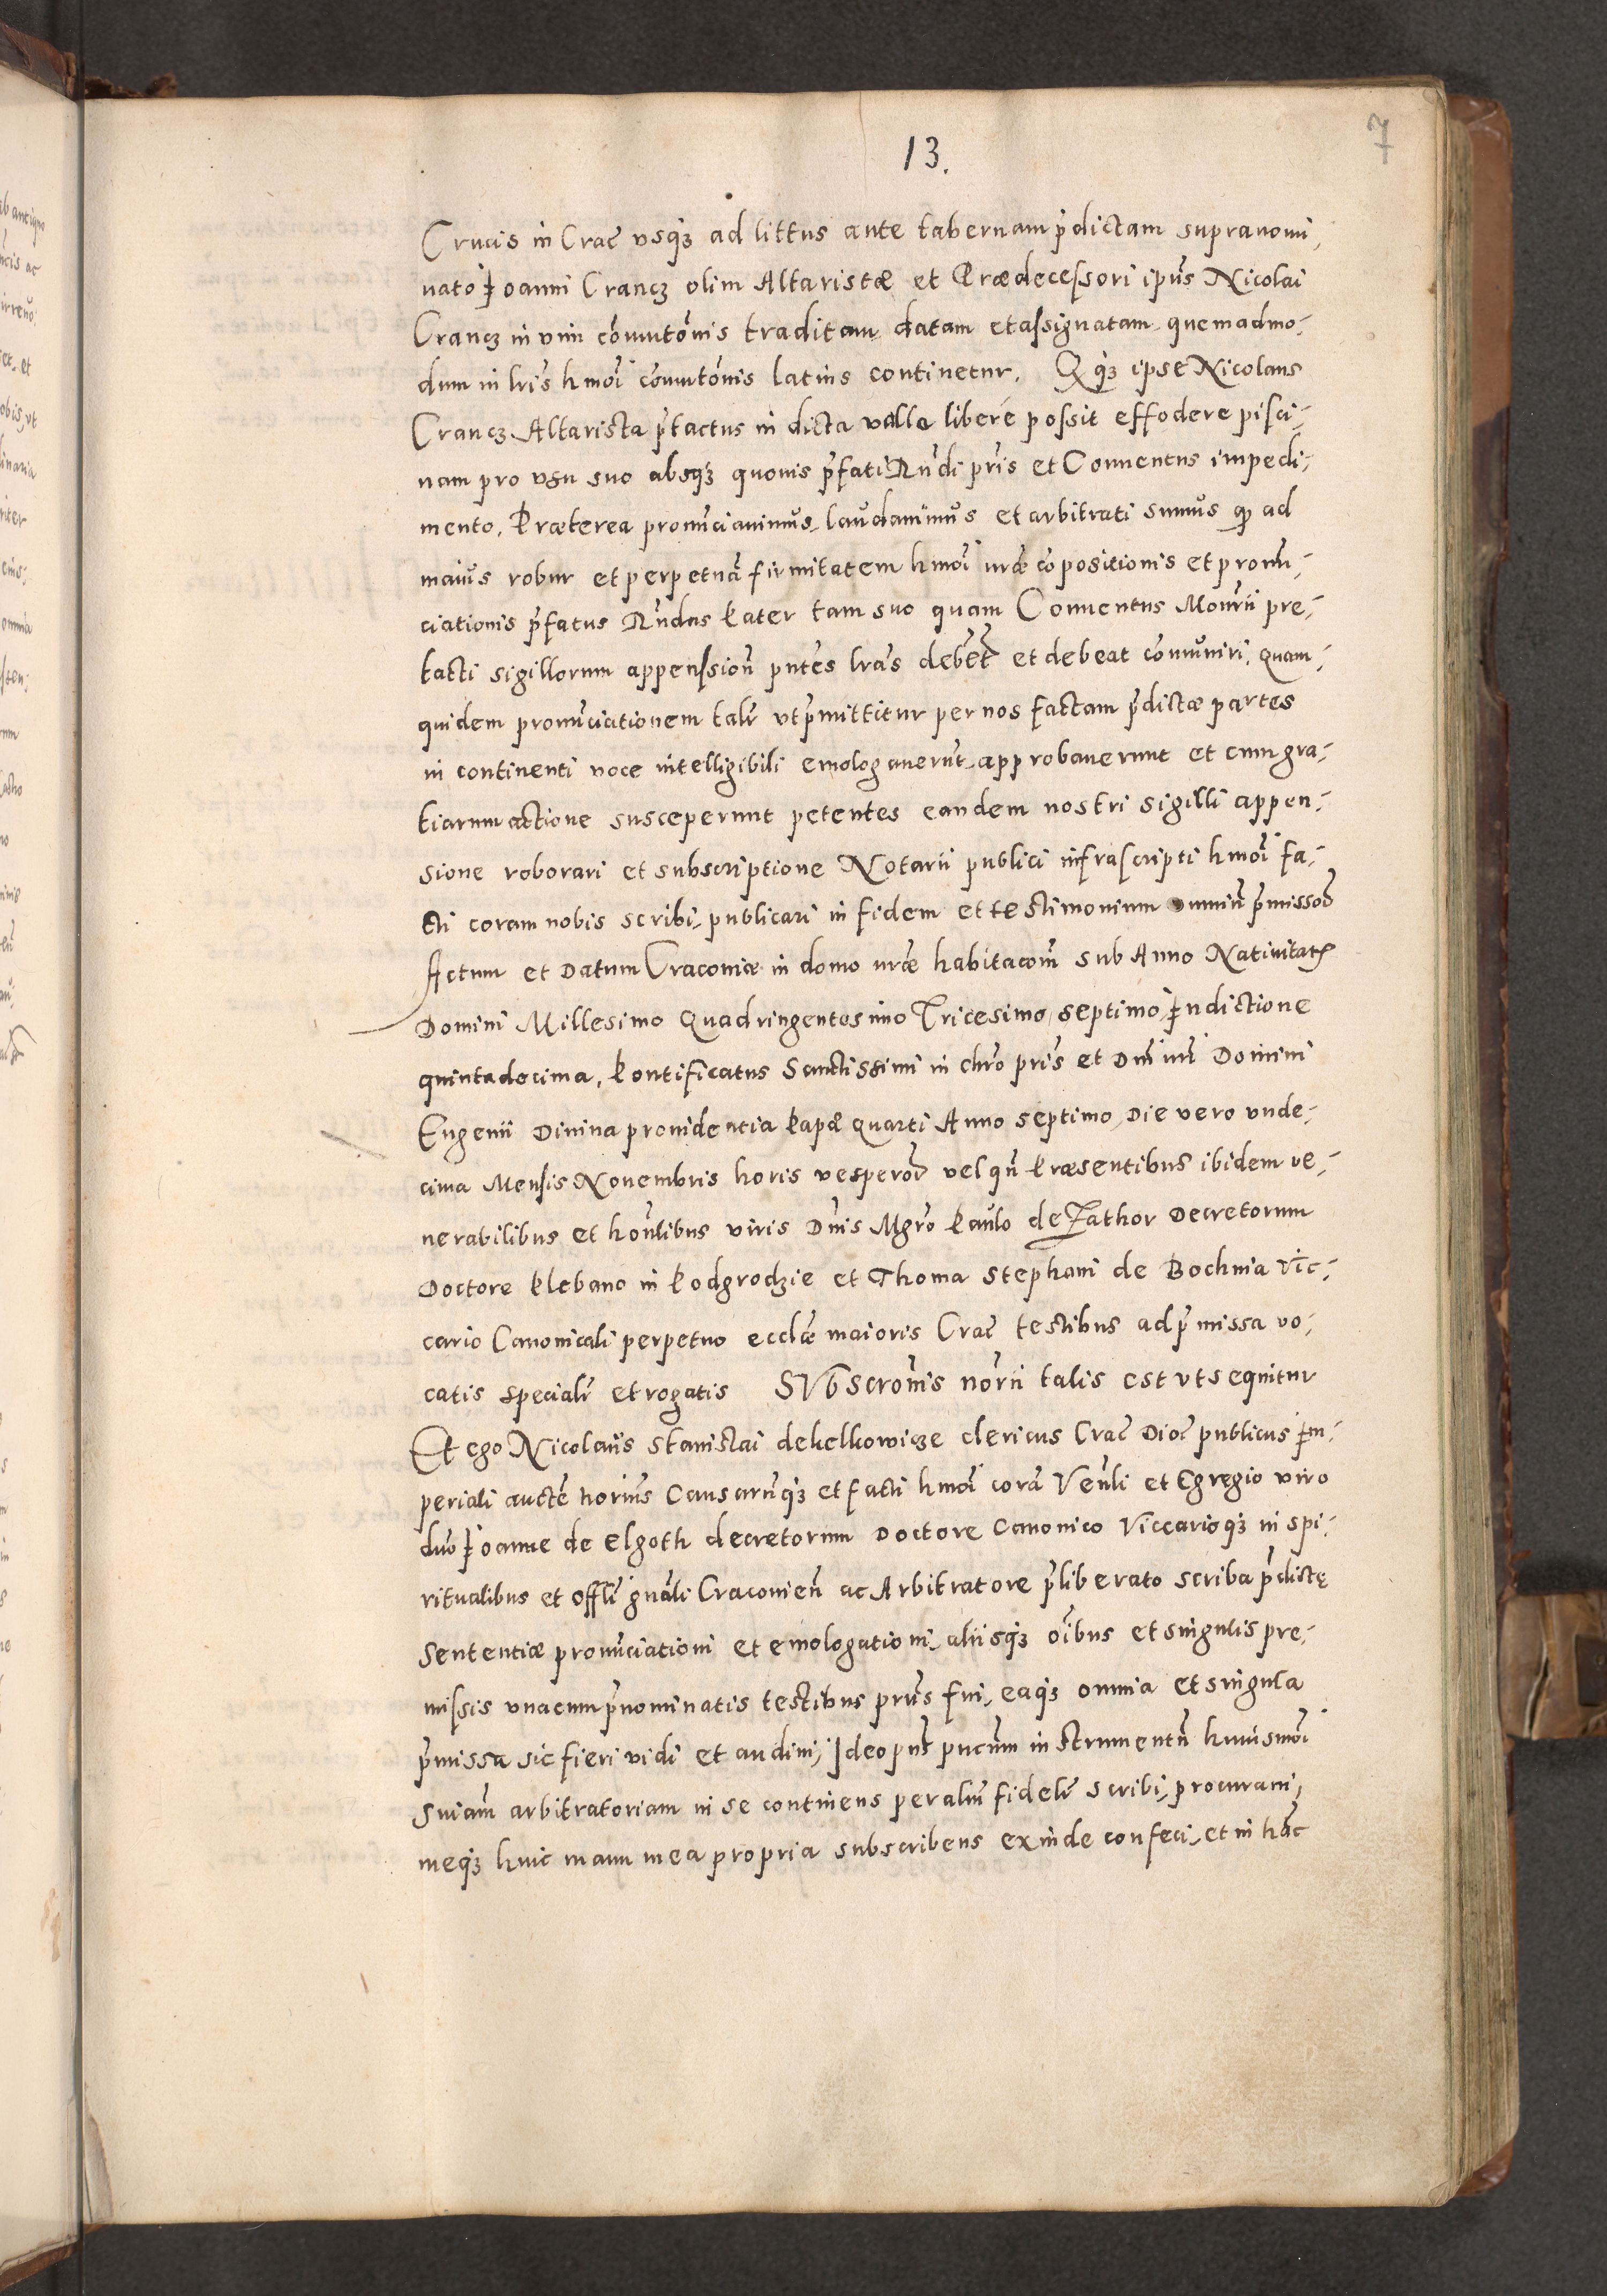 13.
7
Crucis in Crac̄ vsq́ꝫ ad littus ante tabernam p̄dictam supranomi,
nato Joanni Crancz olim Altaristæ et Prædecessori ipiu᷒s Nicolai
Crancz in vim com̄uto᷒nis traditam datam et assignatam, quemadmo,
dum in lr̄is hmo᷒i com̄uto᷒nis latius continetur. Q q́ꝫ ipse Nicolaus
Crancz Altarista p̄tactus in dicta valle liberè possit effodere pisci,
nam pro vsu suo absq́ꝫ quouis p̄fati Rn̄di pr̄is et Conuentus impedi,
mento. Præterea pronūciauimus, laudauimus et arbitrati sumus ꝙ ad
maius robur et perpetuā firmitatem hmo᷒i nr̄æ cōpositionis et pronū,
ciationis p̄fatus Rn̄dus Pater tam suo quam Conuentus Monr̄ii pre,
tacti sigillorum appensioni᷒ pnte᷒s lr̄as debet et debeat com̄uniri, quam,
quidem pronūciationem talit̄ vt p̄mittitur per nos factam p̄dictæ partes
in continenti voce intelligibili emologauerunt, approbauerunt et cum gra,
tiarum actione susceperunt petentes eandem nostri sigilli appen,
sione roborari et subscriptione Notarii publici infrascripti hmo᷒i fa,
cti coram nobis scribi, publicari in fidem et testimonium omniū p̄missoꝝ
Actum et Datum Cracoviæ in domo nr̄æ habitaco᷒nis sub Anno Natiuitatꝭ
Domini Millesimo Quadringentesimo Tricesimo septimo, Indictione
quintadecima, Pontificatus Sanctissimi in chr̄o pr̄is et Dn̄i nr̄i Domini
Eugenii Diuina prouidentia Papæ Quarti Anno septimo, Die vero vnde,
cima Mensis Nouembris horis vesperoꝝ vel qn̄ Præsentibus ibidem ve,
nerabilibus et hon̄libus viris Dn̄is Mgr̄o Paulo de Zathor Decretorum
Doctore Plebano in Podgrodzie et Thoma Stephani de Bochnia Vic,
cario Canonicali perpetuo eccl̄æ maioris Crac̄ testibus ad p̄missa vo,
catis specialit̄ et rogatis SVbscro᷒nis nor̄ii talis est vt sequitur
Et ego Nicolaus Stanislai de Kelkowicze clericus Crac̄ Dioc̄ publicus Im,
periali aucte᷒ noriu᷒s Causarūq́ꝫ et facti hmo᷒i corā Ven̄li et Egregio viro
dn̄o Joanne de Elgoth decretorum Doctore Canonico Viccarioq́ꝫ in spi,
ritualibus et offli᷒ gn̄ali Cracouien̄ ac Arbitratore p̄liberato scriba p̄dictę
Sententiæ pronūciationi et emologationi, aliisq́ꝫ oi᷒bus et singulis pre,
missis vnacum p̄nominatis testibus prn̄s fui, eaq́ꝫ omnia et singula
p̄missa sic fieri vidi et audiui, Ideo pn̄s pucu᷒m instrumentū huiusmo᷒i
Sn̄iam arbitratoriam in se continens per aliū fidelit̄ scribi, procuraui,
meq́ꝫ huic manu mea propria subscribens exinde confeci, et in hāc